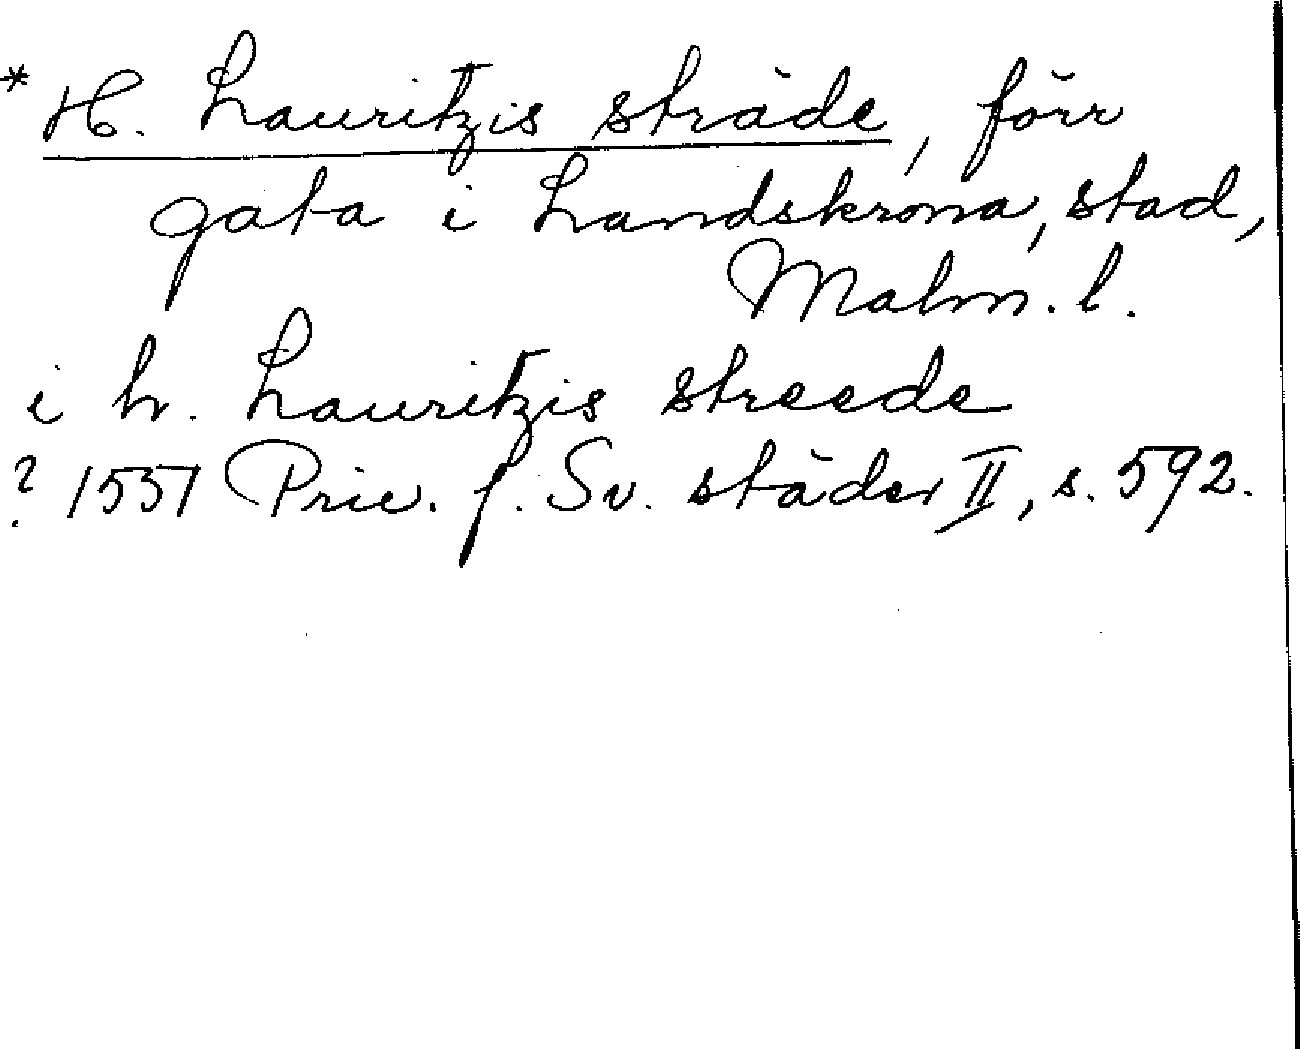 * H. Lauritzis sträde, förr
gata i Landskrona, stad,
Malm. l.
i hr. Lauritzis streede
? 1537 Priv. f. Sv. städer II, s. 592.